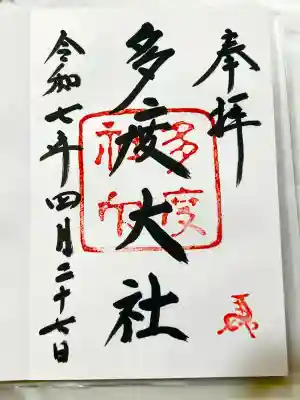 奉拝
多度大社
多度
社印
令和七年四月二十七日